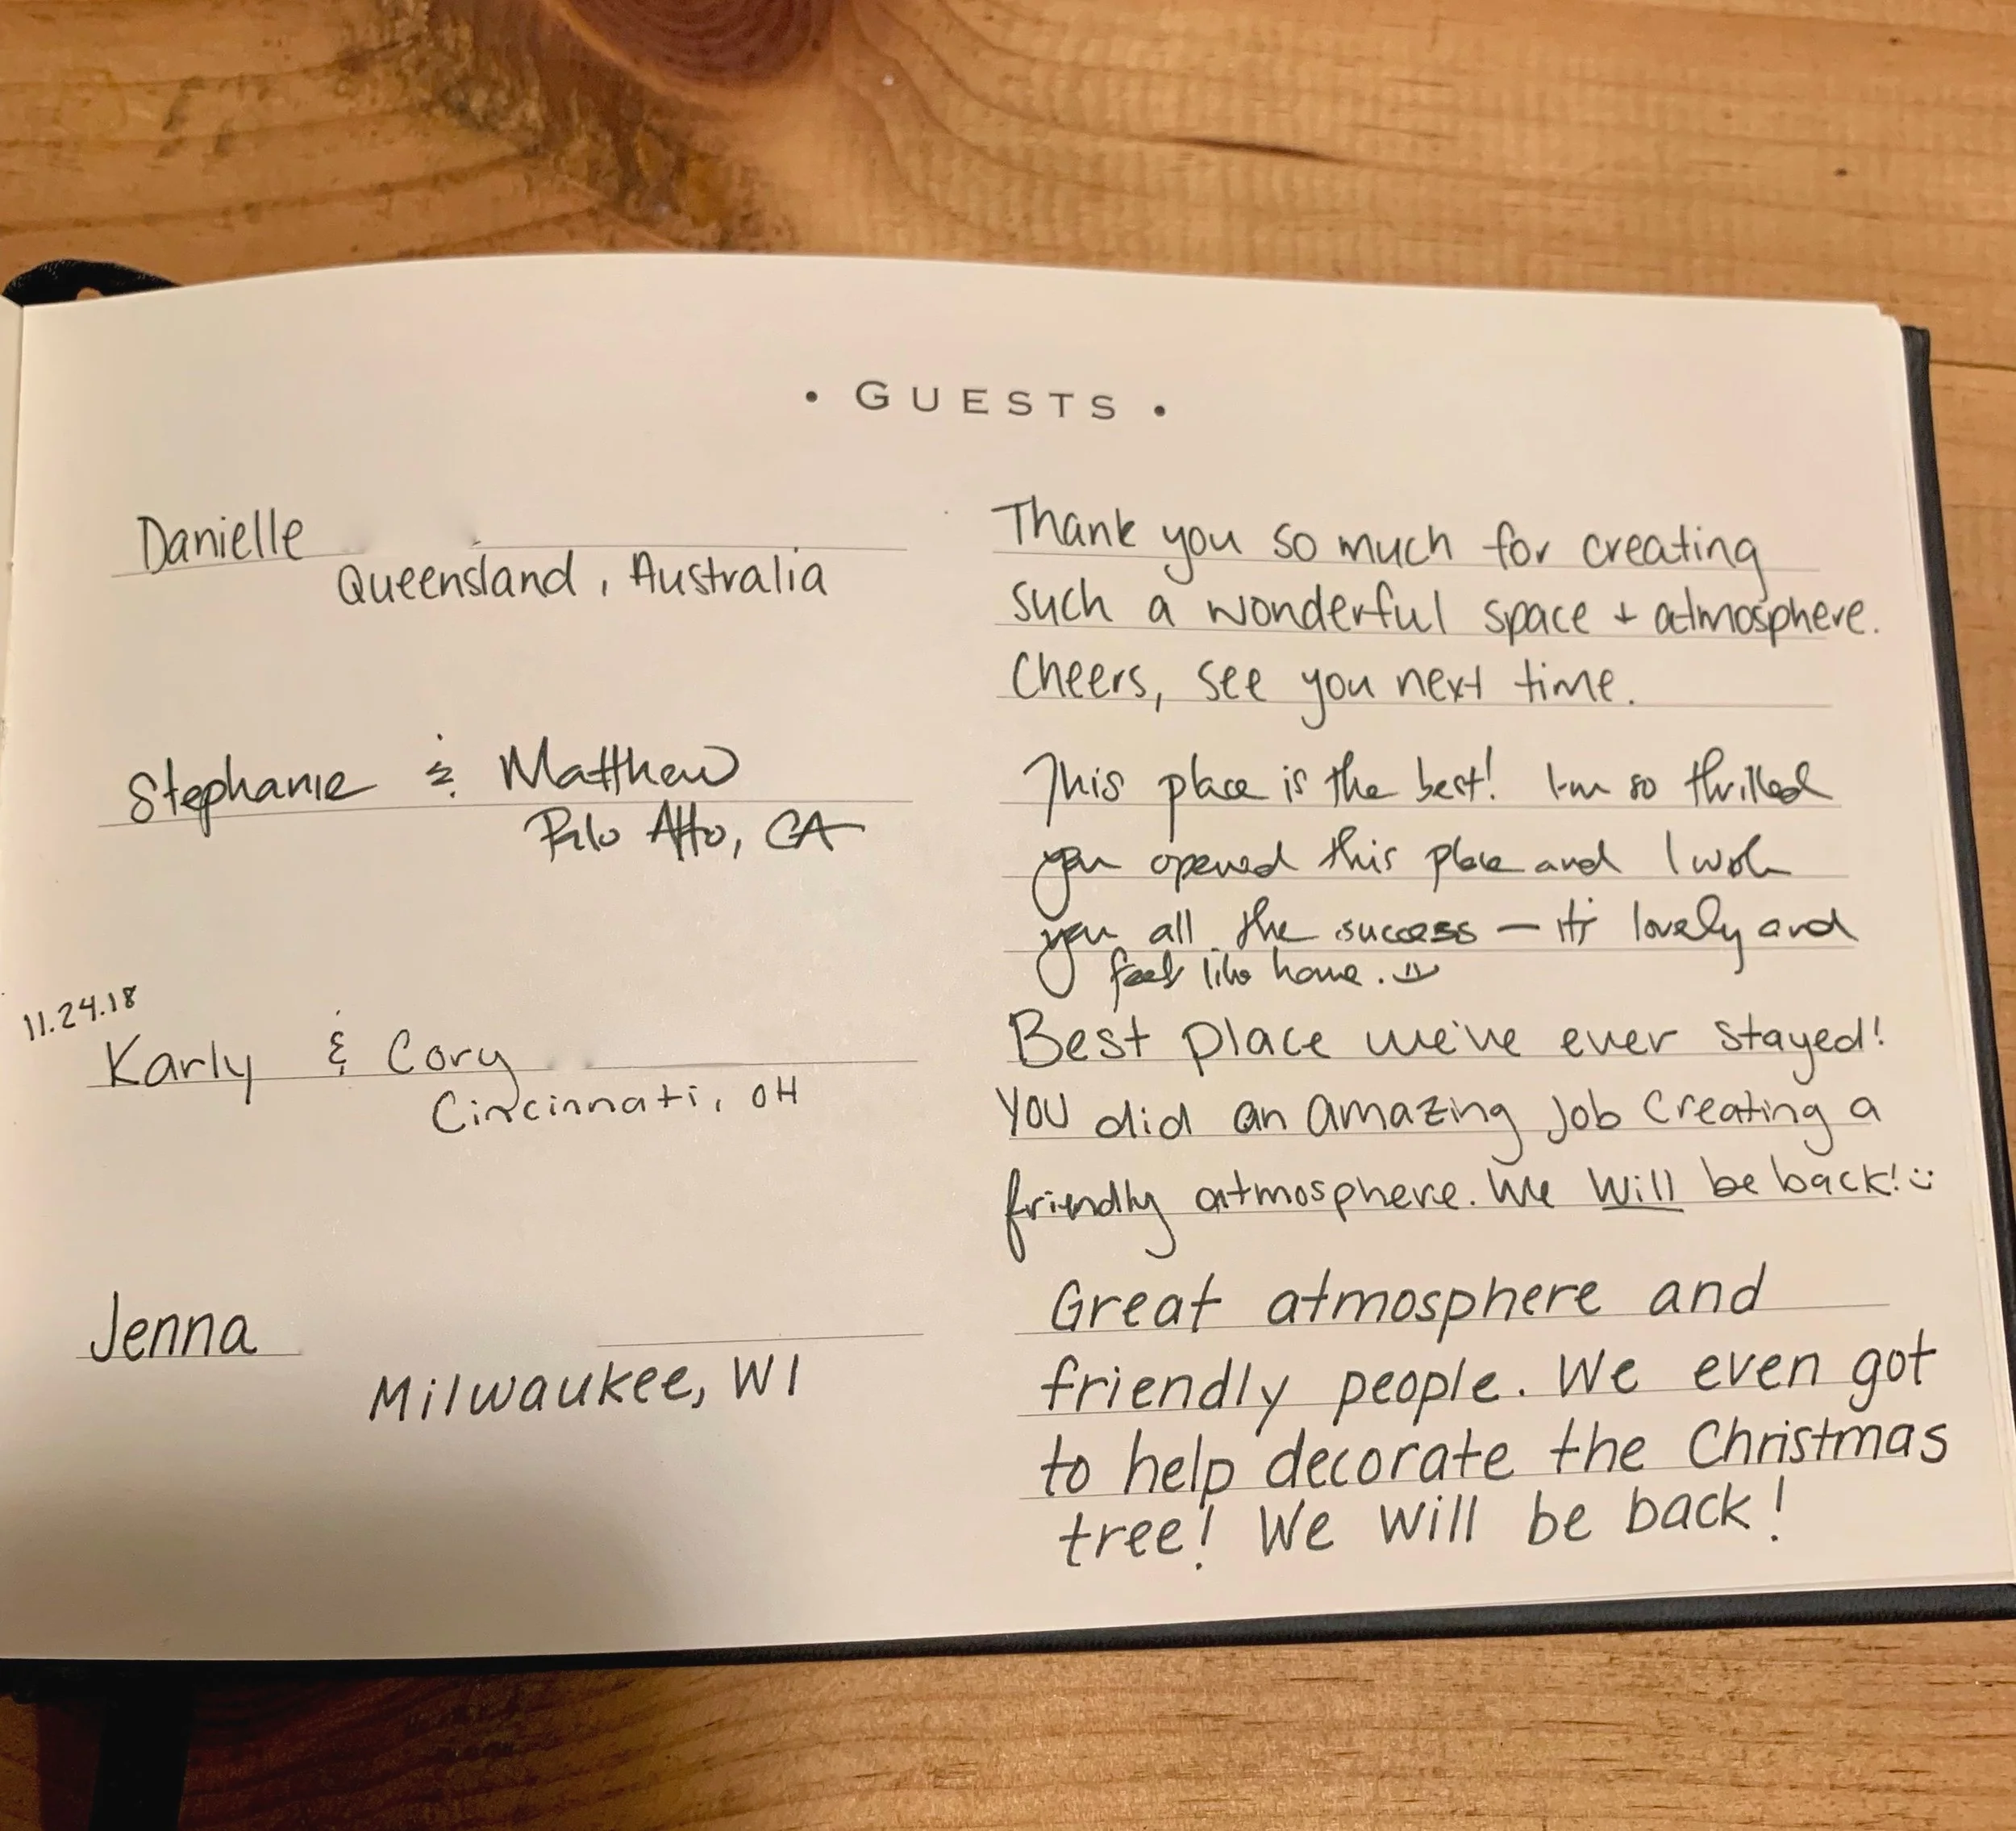 • GUESTS •
Danielle
Queensland, Australia
Thank you so much for creating
such a wonderful space + atmosphere.
Cheers, see you next time.
Stephanie & Matthew
Palo Alto, CA
This place is the best! I'm so thrilled
you opened this place and I wish
you all the success — it's lovely and
feels like home. :)
11.24.18
Karly & Cory
Cincinnati, OH
Best place we've ever stayed!
You did an amazing job creating a
friendly atmosphere. We will be back! :)
Jenna
Milwaukee, WI
Great atmosphere and
friendly people. We even got
to help decorate the Christmas
tree! We will be back!